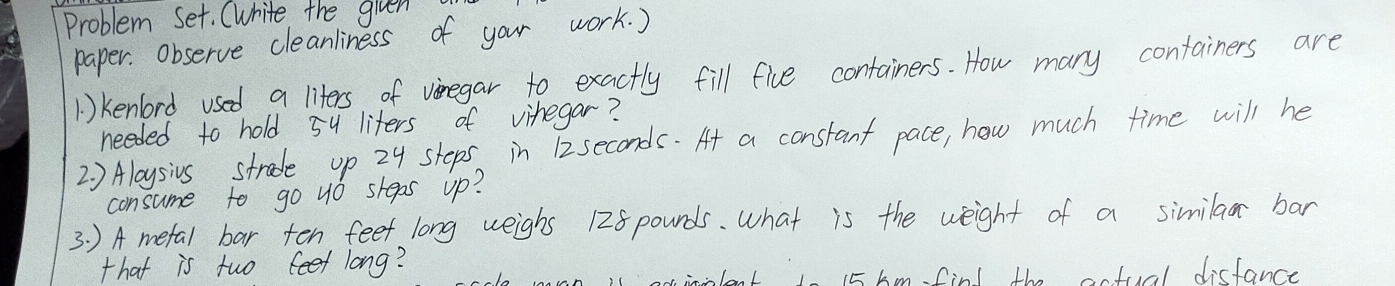 Problem Set. (White the given
paper. Observe cleanliness of your work.)
1.) Kenlord used 9 liters of vinegar to exactly fill five containers. How many containers are
needed to hold 54 liters of vinegar?
2.) Aloysius strode up 24 steps in 12 seconds. At a constant pace, how much time will he
consume to go 40 steps up?
3.) A metal bar ten feet long weighs 128 pounds. What is the weight of a similar bar
that is two feet long?
to 15 km. find the actual distance